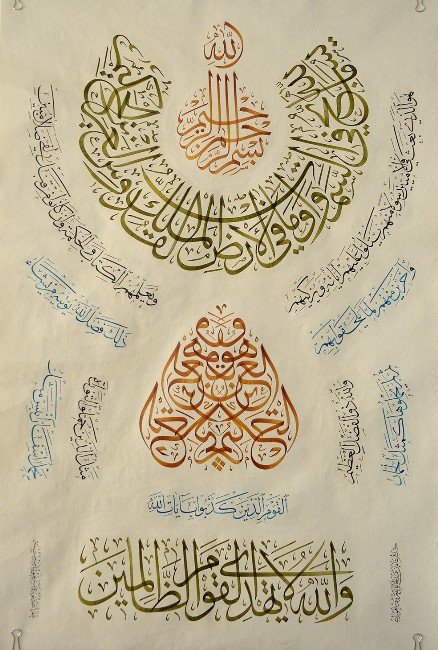 الله
بسم الله الرحمن الرحيم
يسبح لله ما في السموات وما في الأرض الملك القدوس العزيز الحكيم
هو الذي بعث في الأميين رسولا منهم يتلو عليهم آياته ويزكيهم
ويعلمهم الكتاب والحكمة وإن كانوا من قبل لفي ضلال مبين
وآخرين منهم لما يلحقوا بهم
وهو العزيز الحكيم
ذلك فضل الله يؤتيه من يشاء
والله ذو الفضل العظيم
القوم الذين كذبوا بآيات الله
والله لا يهدي القوم الظالمين